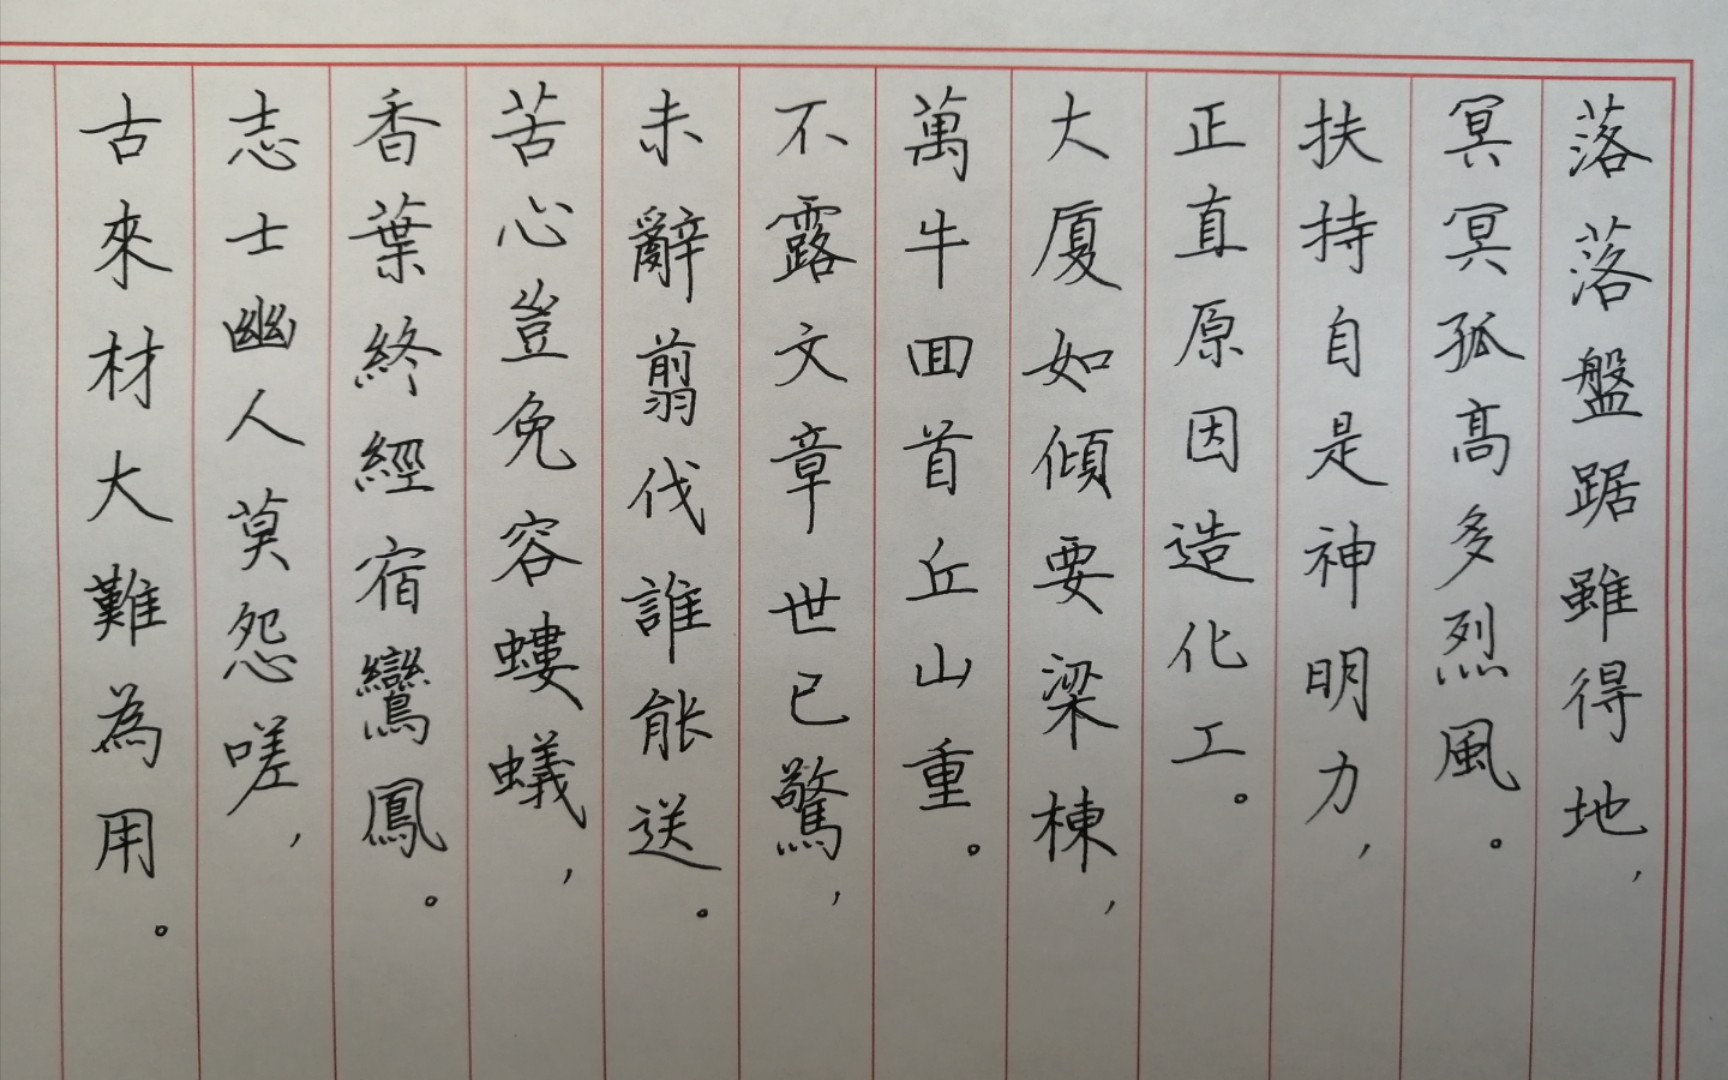 落落盤踞雖得地，
冥冥孤高多烈風。
扶持自是神明力，
正直原因造化工。
大廈如傾要梁棟，
萬牛回首丘山重。
不露文章世已驚，
未辭翦伐誰能送。
苦心豈免容螻蟻，
香葉終經宿鸞鳳。
志士幽人莫怨嗟，
古來材大難為用。